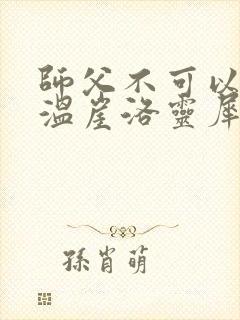 師父不可以
溫崖洛靈犀
孫肖萌